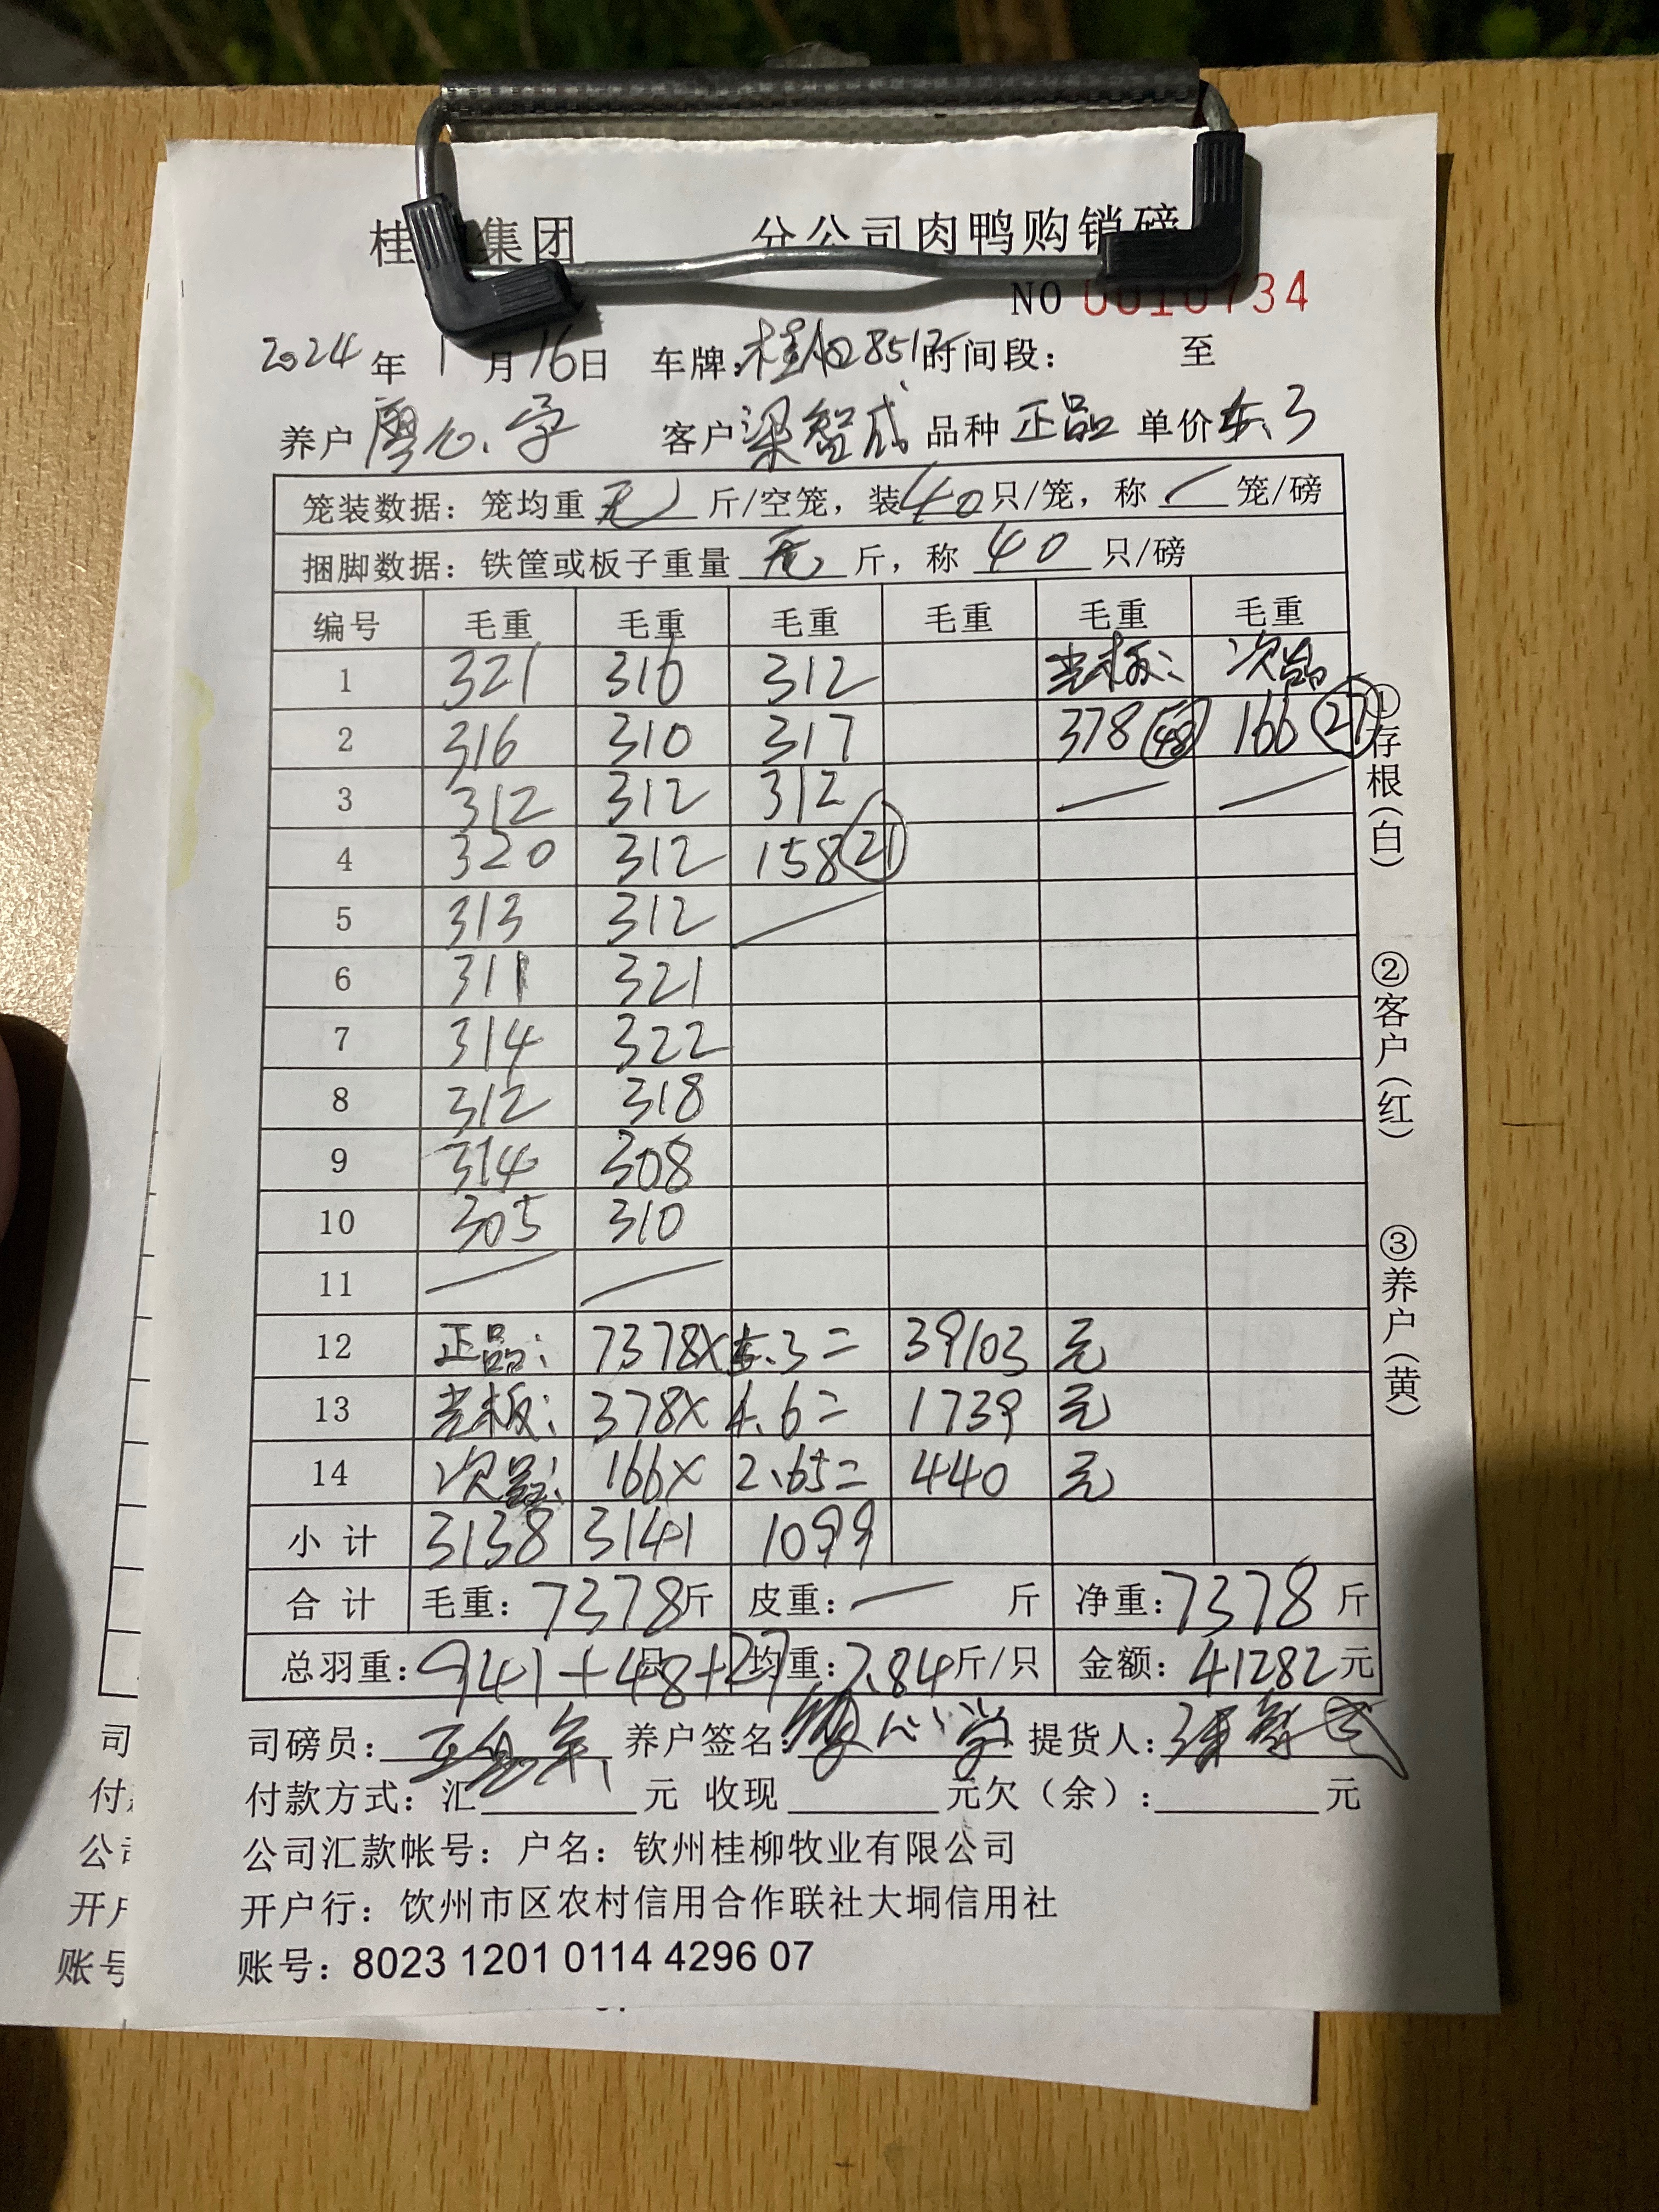 桂 集团 分公司肉鸭购销磅
NO 0010734
2024年1月16日 车牌: 时间段: 至
养户 廖心学 客户 梁智成 品种 正品 单价 5.3
笼装数据: 笼均重 无 斤/空笼, 装 40 只/笼, 称 / 笼/磅
捆脚数据: 铁筐或板子重量 无 斤, 称 40 只/磅
编号 毛重 毛重 毛重 毛重 毛重 毛重
1 321 316 312 光板: 次品
2 316 310 317 378 (48) 166 (27)
3 312 312 312 / /
4 320 312 158 (21)
5 313 312 /
6 311 321
7 314 322
8 312 318
9 314 308
10 305 310
11 / /
12 正品: 7378× 5.3= 39103 元
13 光板: 378× 4.6= 1739 元
14 次品: 166× 2.65= 440 元
小计 3138 3141 1099
合计 毛重: 7378斤 皮重: — 斤 净重: 7378 斤
总羽重: 941+48+27 只 均重: 7.84斤/只 金额: 41282元
司磅员: 养户签名: 廖心学 提货人: 梁智成
付款方式: 汇 元 收现 元欠(余): 元
公司汇款帐号: 户名: 钦州桂柳牧业有限公司
开户行: 饮州市区农村信用合作联社大垌信用社
账号: 8023 1201 0114 4296 07
①存根(白) ②客户(红) ③养户(黄)
司
付
公司
开户
账号